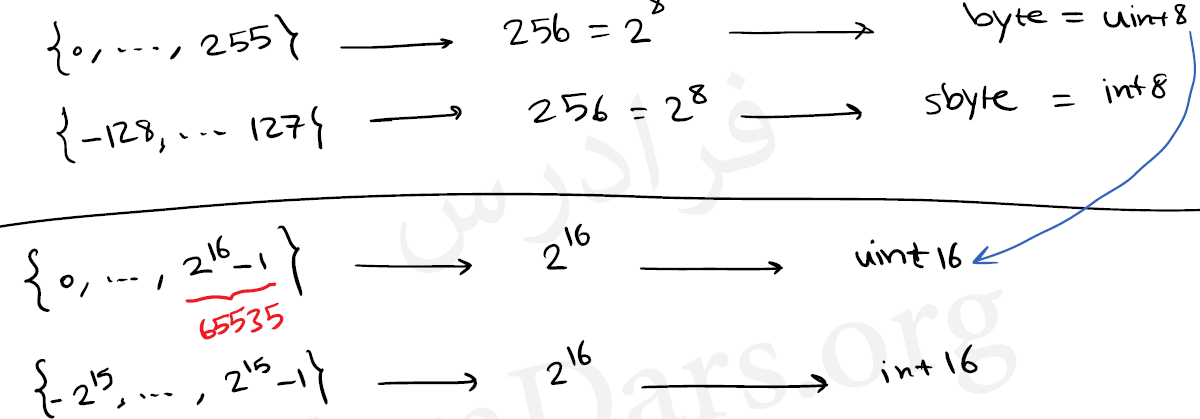 {0, ..., 255} → 256 = 2⁸ → byte = uint8
{-128, ... 127} → 256 = 2⁸ → sbyte = int8
فرادرس
{0, ..., 2¹⁶-1} → 2¹⁶ → uint16
65535
{-2¹⁵, ..., 2¹⁵-1} → 2¹⁶ → int16
Dars.org